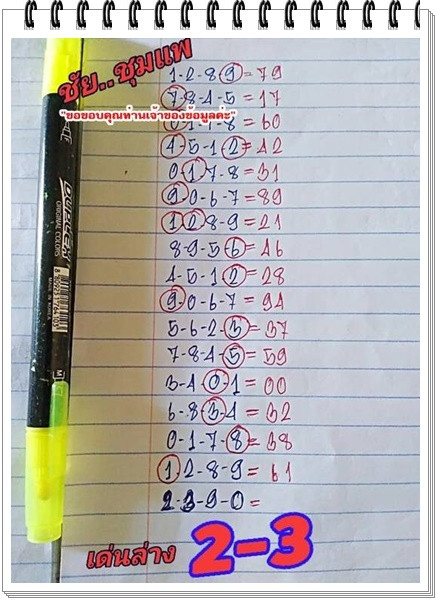 ชัย..ชุมแพ
1-2-8-9=79
7-8-4-5=17
"ขอขอบคุณท่านเจ้าของข้อมูลค่ะ"
0-1-7-8=60
4-5-1-2=42
0-1-7-8=31
9-0-6-7=89
1-2-8-9=21
8-9-5-6=46
4-5-1-2=28
9-0-6-7=94
5-6-2-3=37
7-8-4-5=59
3-4-0-1=00
6-8-3-4=32
0-1-7-8=38
1-2-8-9=61
2-3-9-0=
เด่นล่าง 2-3
DUPLEX
ORIGINAL COLORS